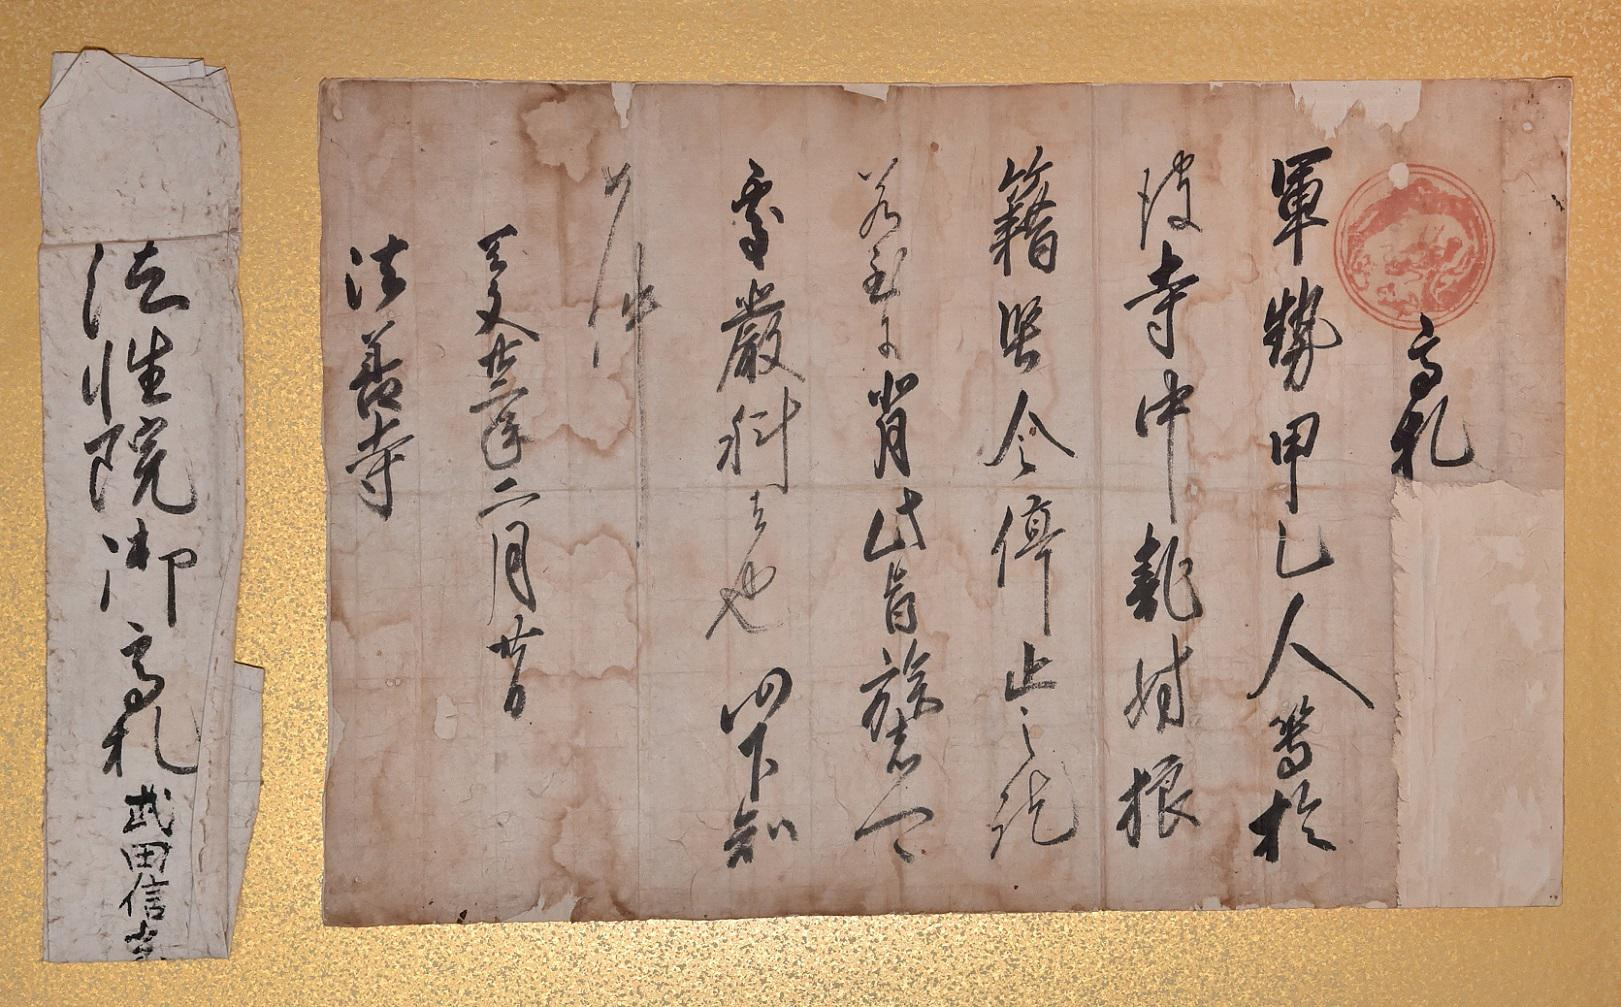 高札
軍勢甲乙人等於
彼寺中執妨狼
籍堅令停止之訖
若至于背此旨族者可
處嚴科者也仍下知
如件
天文廿二年二月廿日
法善寺
法性院御高札武田信玄